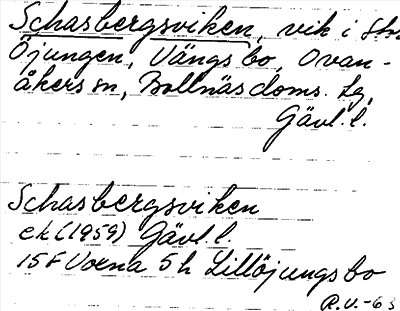 Schasbergsviken, vik i Stora
Öjungen, Vängsbo, Ovan-
åkers sn, Bollnäs doms. lg,
Gävl. l.
Schasbergsviken
ek (1959) Gävl. l.
15F Voxna 5h Lillöjungsbo
R.V.-63